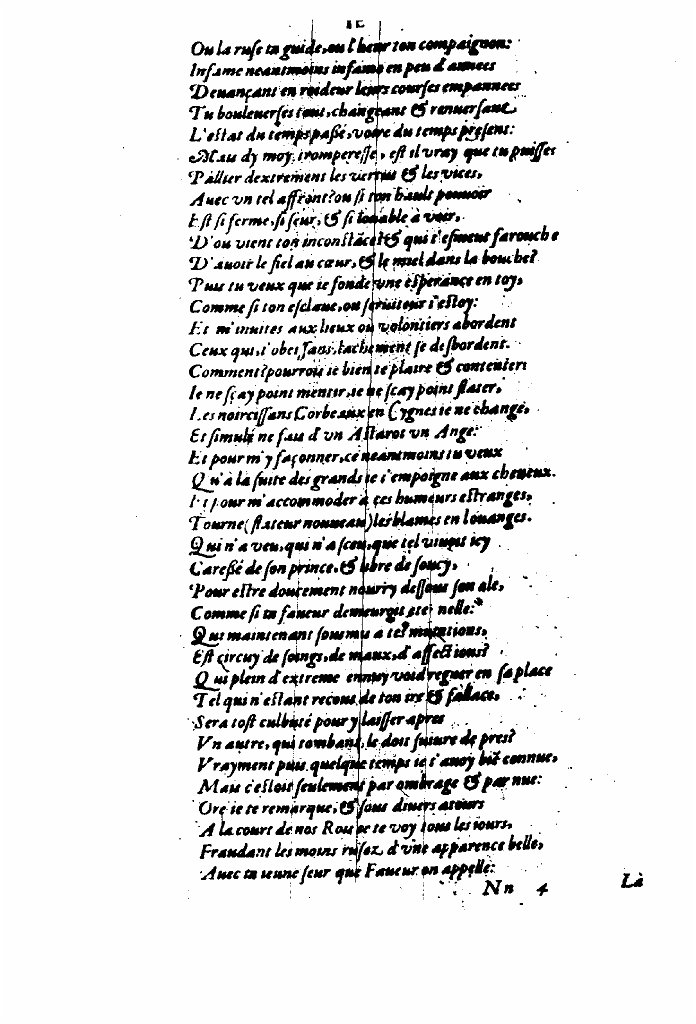 Ou la ruse ta guide, ou l'heur ton compaignon:
Infame neantmoins infame en peu d'annees
Deuançant en roideur leurs courses empannees
Tu bouleuerses tout, changeant & renuersant
L'estat du temps paßé, voire du temps present:
Mais dy moy, tromperesse, est il vray que tu puisses
Pallier dextrement les vertus & les vices,
Auec vn tel affront? ou si ton hault pouuoir
Est si ferme, si seur, & si louable à voir,
D'ou vient ton inconstāce? & qui t'esmeut farouche
D'auoir le fiel au cœur, & le miel dans la bouche?
Puis tu veux que ie fonde vne esperance en toy,
Comme si ton esclaue, ou seruiteur i'estoy:
Et m'inuites aux lieux ou volontiers abordent
Ceux qui, t'obeissans, laschement se desbordent.
Comment? pourrois ie bien te plaire & contenter?
Ie ne sçay point mentir, ie ne sçay point flater,
Les noircissans Corbeaux en Cygnes ie ne change,
Et simulé ne fais d'vn Astarot vn Ange:
Et pour m'y façonner, ce neantmoins tu veux
Qu'à la suite des grands ie t'empoigne aux cheueux.
Et pour m'accommoder à ces humeurs estranges,
Tourne (flateur nouueau) les blames en louanges.
Qui n'a veu, qui n'a sceu, que tel viuoit icy
Careßé de son prince, & libre de soucy,
Pour estre doucement nourry dessous son æle,
Comme si ta faueur demeuroit eternelle:
Qui maintenant soumis a tes mutations,
Est circuy de soings, de maux, d'affections?
Qui plein d'extreme ennuy void regner en sa place
Tel qui n'estant recous de ton ire & fallace,
Sera tost culbuté pour y laisser apres
Vn autre, qui tombant, le doit suiure de pres?
Vrayment puis quelque temps ie t'auoy biē connue,
Mais c'estoit seulement par ombrage & par nue:
Ore ie te remarque, & sous diuers atours
A la court de nos Rois ie te voy tous les iours,
Fraudant les moins rusez d'vne apparence belle,
Auec ta ieune seur que Faueur on appelle:
Nn 4 Là